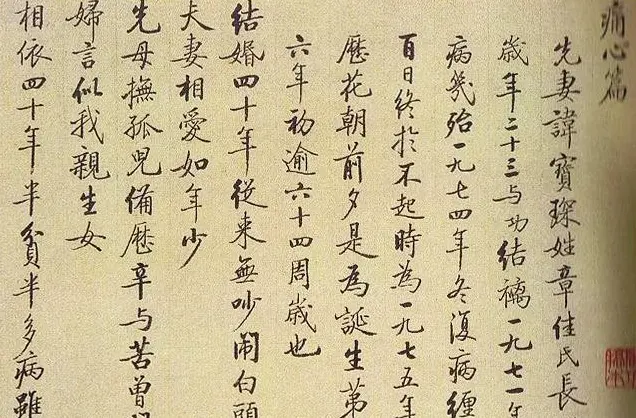 痛心篇
先妻諱寶琛姓章佳氏長
歲年二十三与功結褵一九七一年
病幾殆一九七四年冬復病纏
百日終於不起時為一九七五年
歷花朝前夕是為誕生第
六年初逾六十四周歲也
結婚四十年從來無吵鬧白頭
夫妻相愛如年少
先母撫孤兒備歷辛与苦曾
婦言似我親生女
相依四十年半貧半多病雖